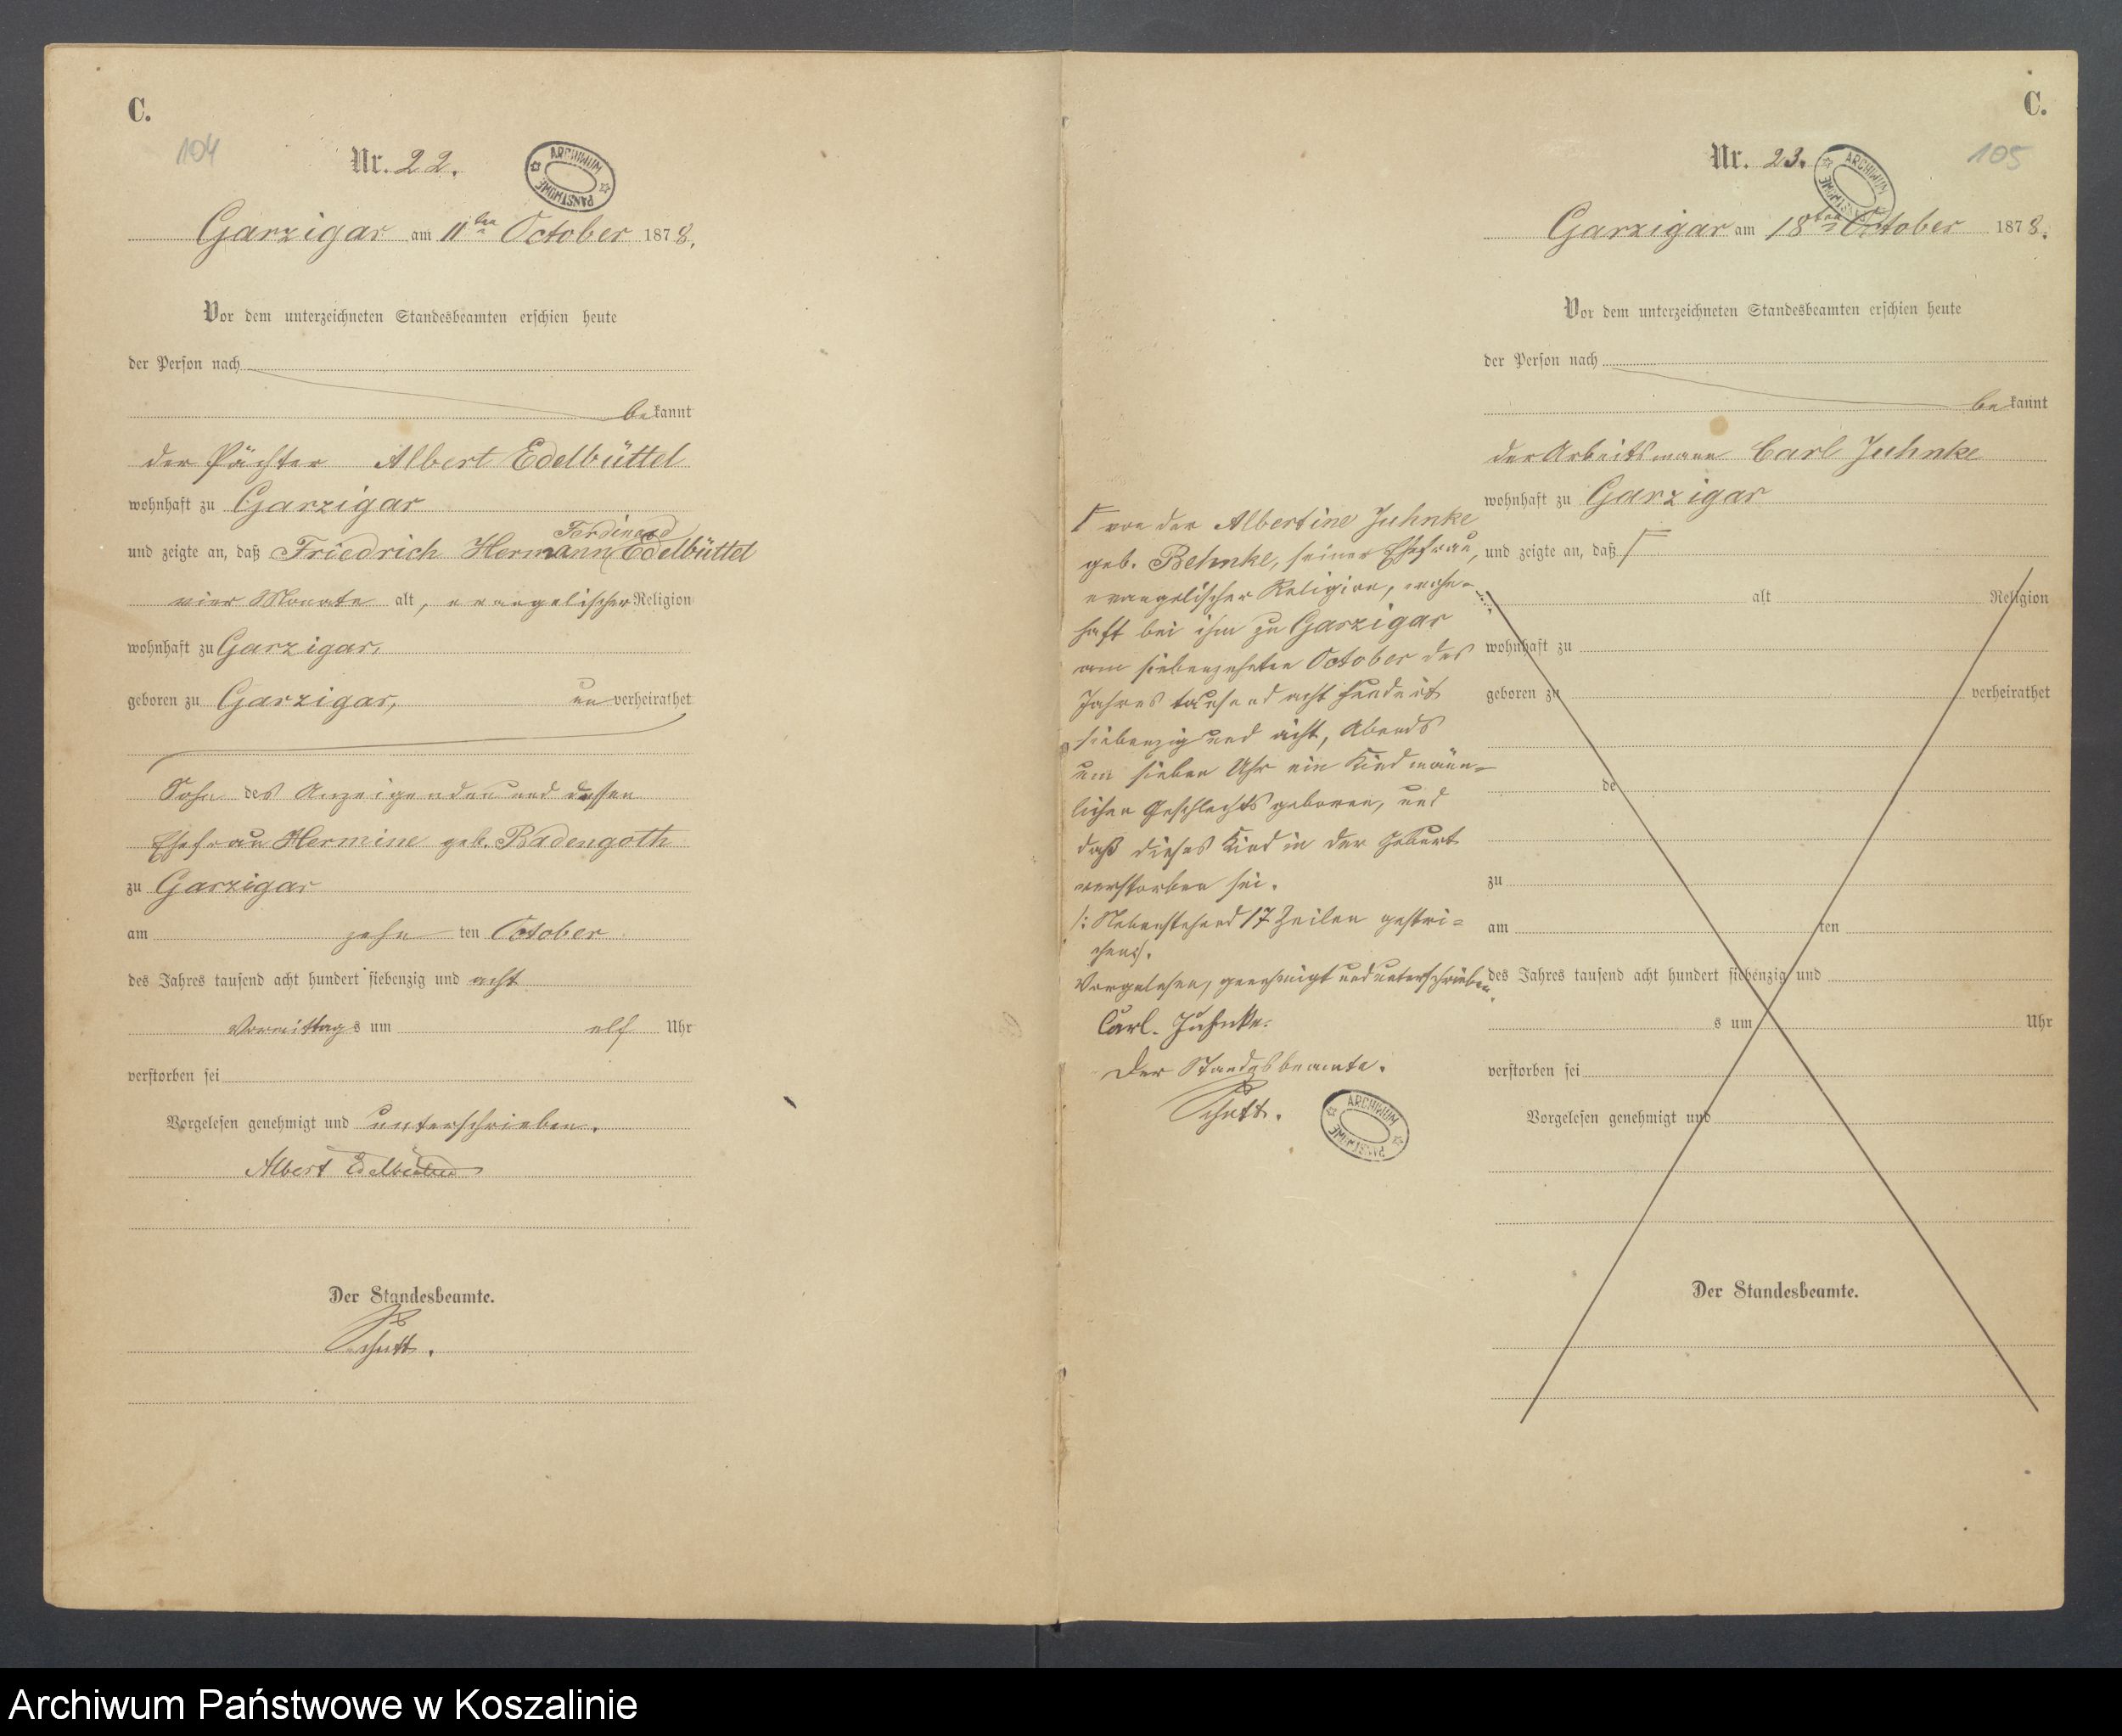 C.
104
Nr. 22.
ARCHIWUM PAŃSTWOWE
Garzigar am 11ten October 1878.
Vor dem unterzeichneten Standesbeamten erschien heute
der Person nach
bekannt
der Pächter Albert Edelbüttel
wohnhaft zu Garzigar
Ferdinand
und zeigte an, daß Friedrich Hermann Edelbüttel
vier Monate alt, evangelischer Religion
wohnhaft zu Garzigar,
geboren zu Garzigar, unverheirathet
Sohn des Anzeigenden und dessen
Ehefrau Hermine geb. Badengoth
zu Garzigar
am zehnten October
des Jahres tausend acht hundert siebenzig und acht
Vormittags um elf Uhr
verstorben sei
Vorgelesen genehmigt und unterschrieben.
Albert Edelbüttel
Der Standesbeamte.
Schutt.
C.
105
Nr. 23.
ARCHIWUM PAŃSTWOWE
Garzigar am 18ten October 1878.
Vor dem unterzeichneten Standesbeamten erschien heute
der Person nach
bekannt
der Arbeitsmann Carl Juhnke
wohnhaft zu Garzigar
und zeigte an, daß Γ
alt Religion
wohnhaft zu
geboren zu verheirathet
de
zu
am ten
des Jahres tausend acht hundert siebenzig und
s um Uhr
verstorben sei
Vorgelesen genehmigt und
Der Standesbeamte.
Γ von der Albertine Juhnke
geb. Behnke, seiner Ehefrau,
evangelischer Religion, wohn-
haft bei ihm zu Garzigar
am siebenzehnten October des
Jahres tausend acht hundert
siebenzig und acht, Abends
um sieben Uhr ein Kind männ-
lichen Geschlechts geboren, und
daß dieses Kind in der Geburt
verstorben sei.
/: Nebenstehend 17 Zeilen gestri-
chen/.
Vorgelesen, genehmigt und unterschrieben.
Carl. Juhnke.
Der Standesbeamte.
Schutt.
ARCHIWUM PAŃSTWOWE
Archiwum Państwowe w Koszalinie